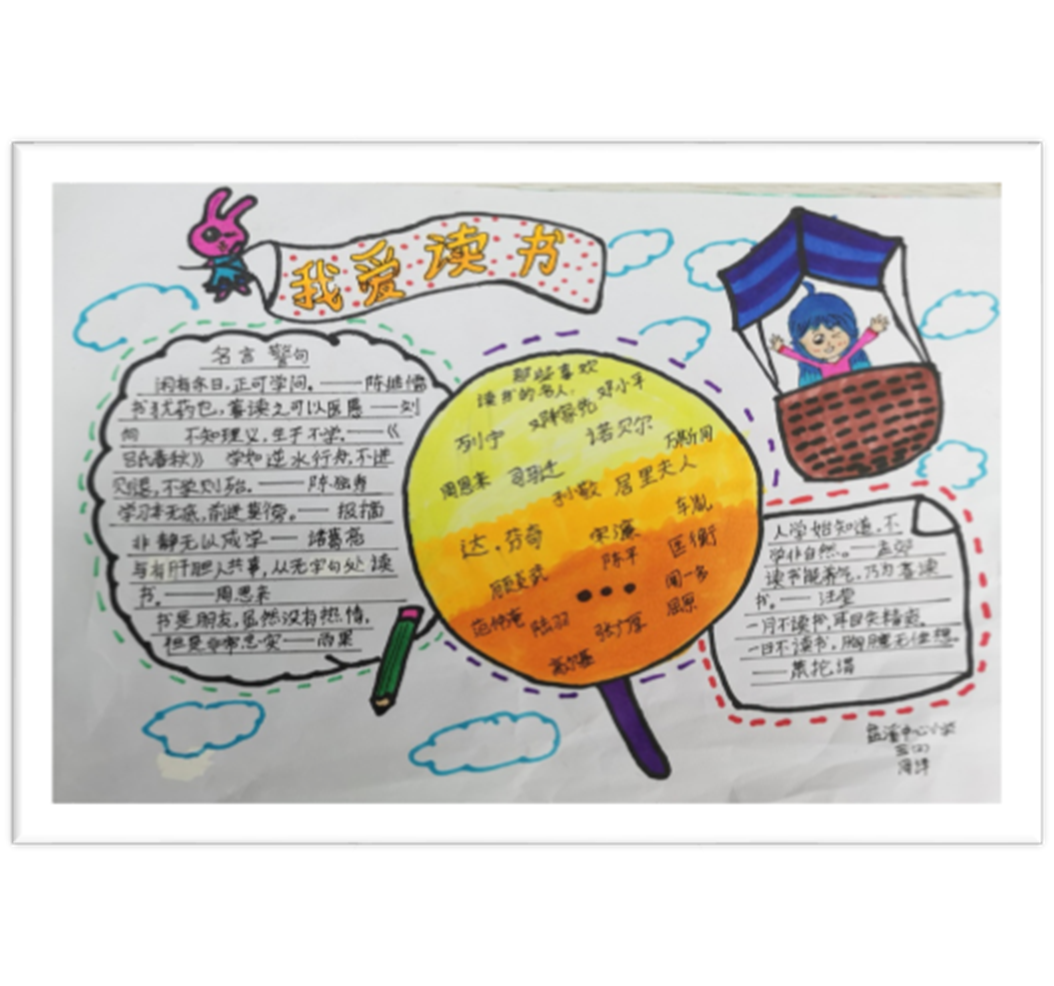 我爱读书
名言警句
闲有余日,正可学问。——陈继儒
书犹药也,善读之可以医愚——刘
向 不知理义,生于不学。——《
吕氏春秋》 学如逆水行舟,不进
则退,不学则殆。——陈独秀
学习本无底,前进莫彷徨。——
非静无以成学——诸葛亮
与有肝胆人共事,从无字句处读
书。——周恩来
书是朋友,虽然没有热情,
但是非常忠实——雨果
那些喜欢
读书的名人:
列宁
邓小平
诺贝尔
周恩来
司马迁
孙敬
居里夫人
车胤
达·芬奇
宋濂
陈平
匡衡
顾炎武
闻一多
范仲淹
陆羽
张广厚
高尔基
人学始知道,不
学非自然。——孟郊
读书能养气,乃为善读
书。——汪莹
一月不读书,耳目失精爽。
一日不读书,胸臆无佳想
——萧抡谓
中心小学